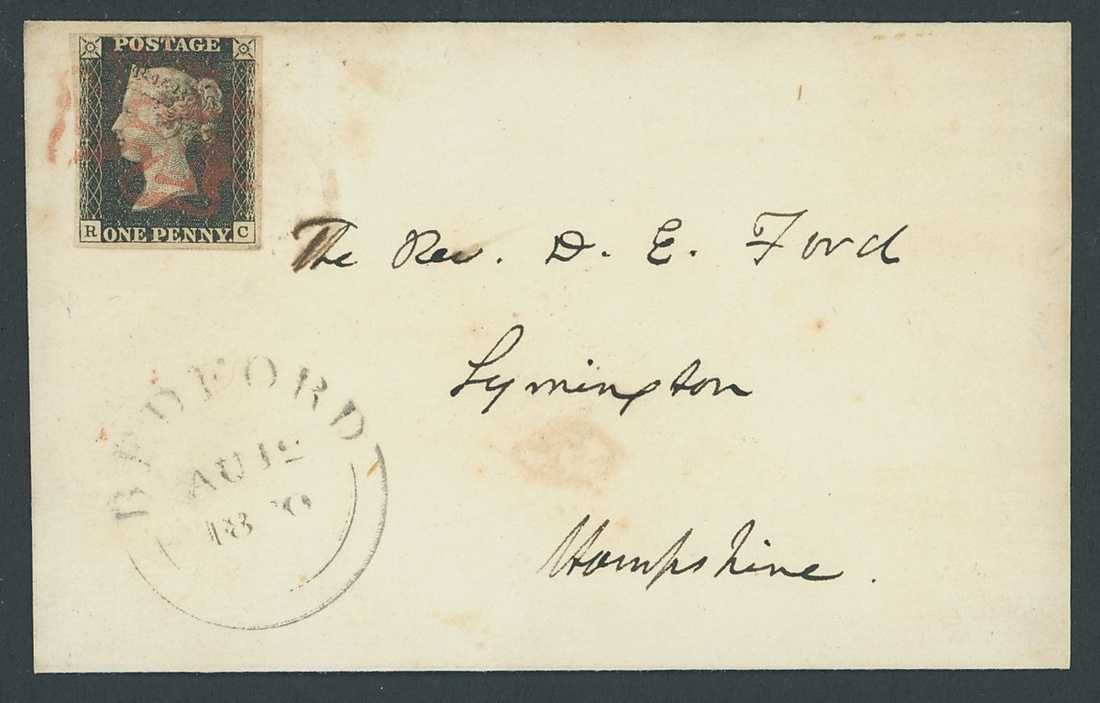 POSTAGE
R ONE PENNY. C
The Rev. D. E. Ford
Lymington
Hampshire.
BEDFORD
AU 12